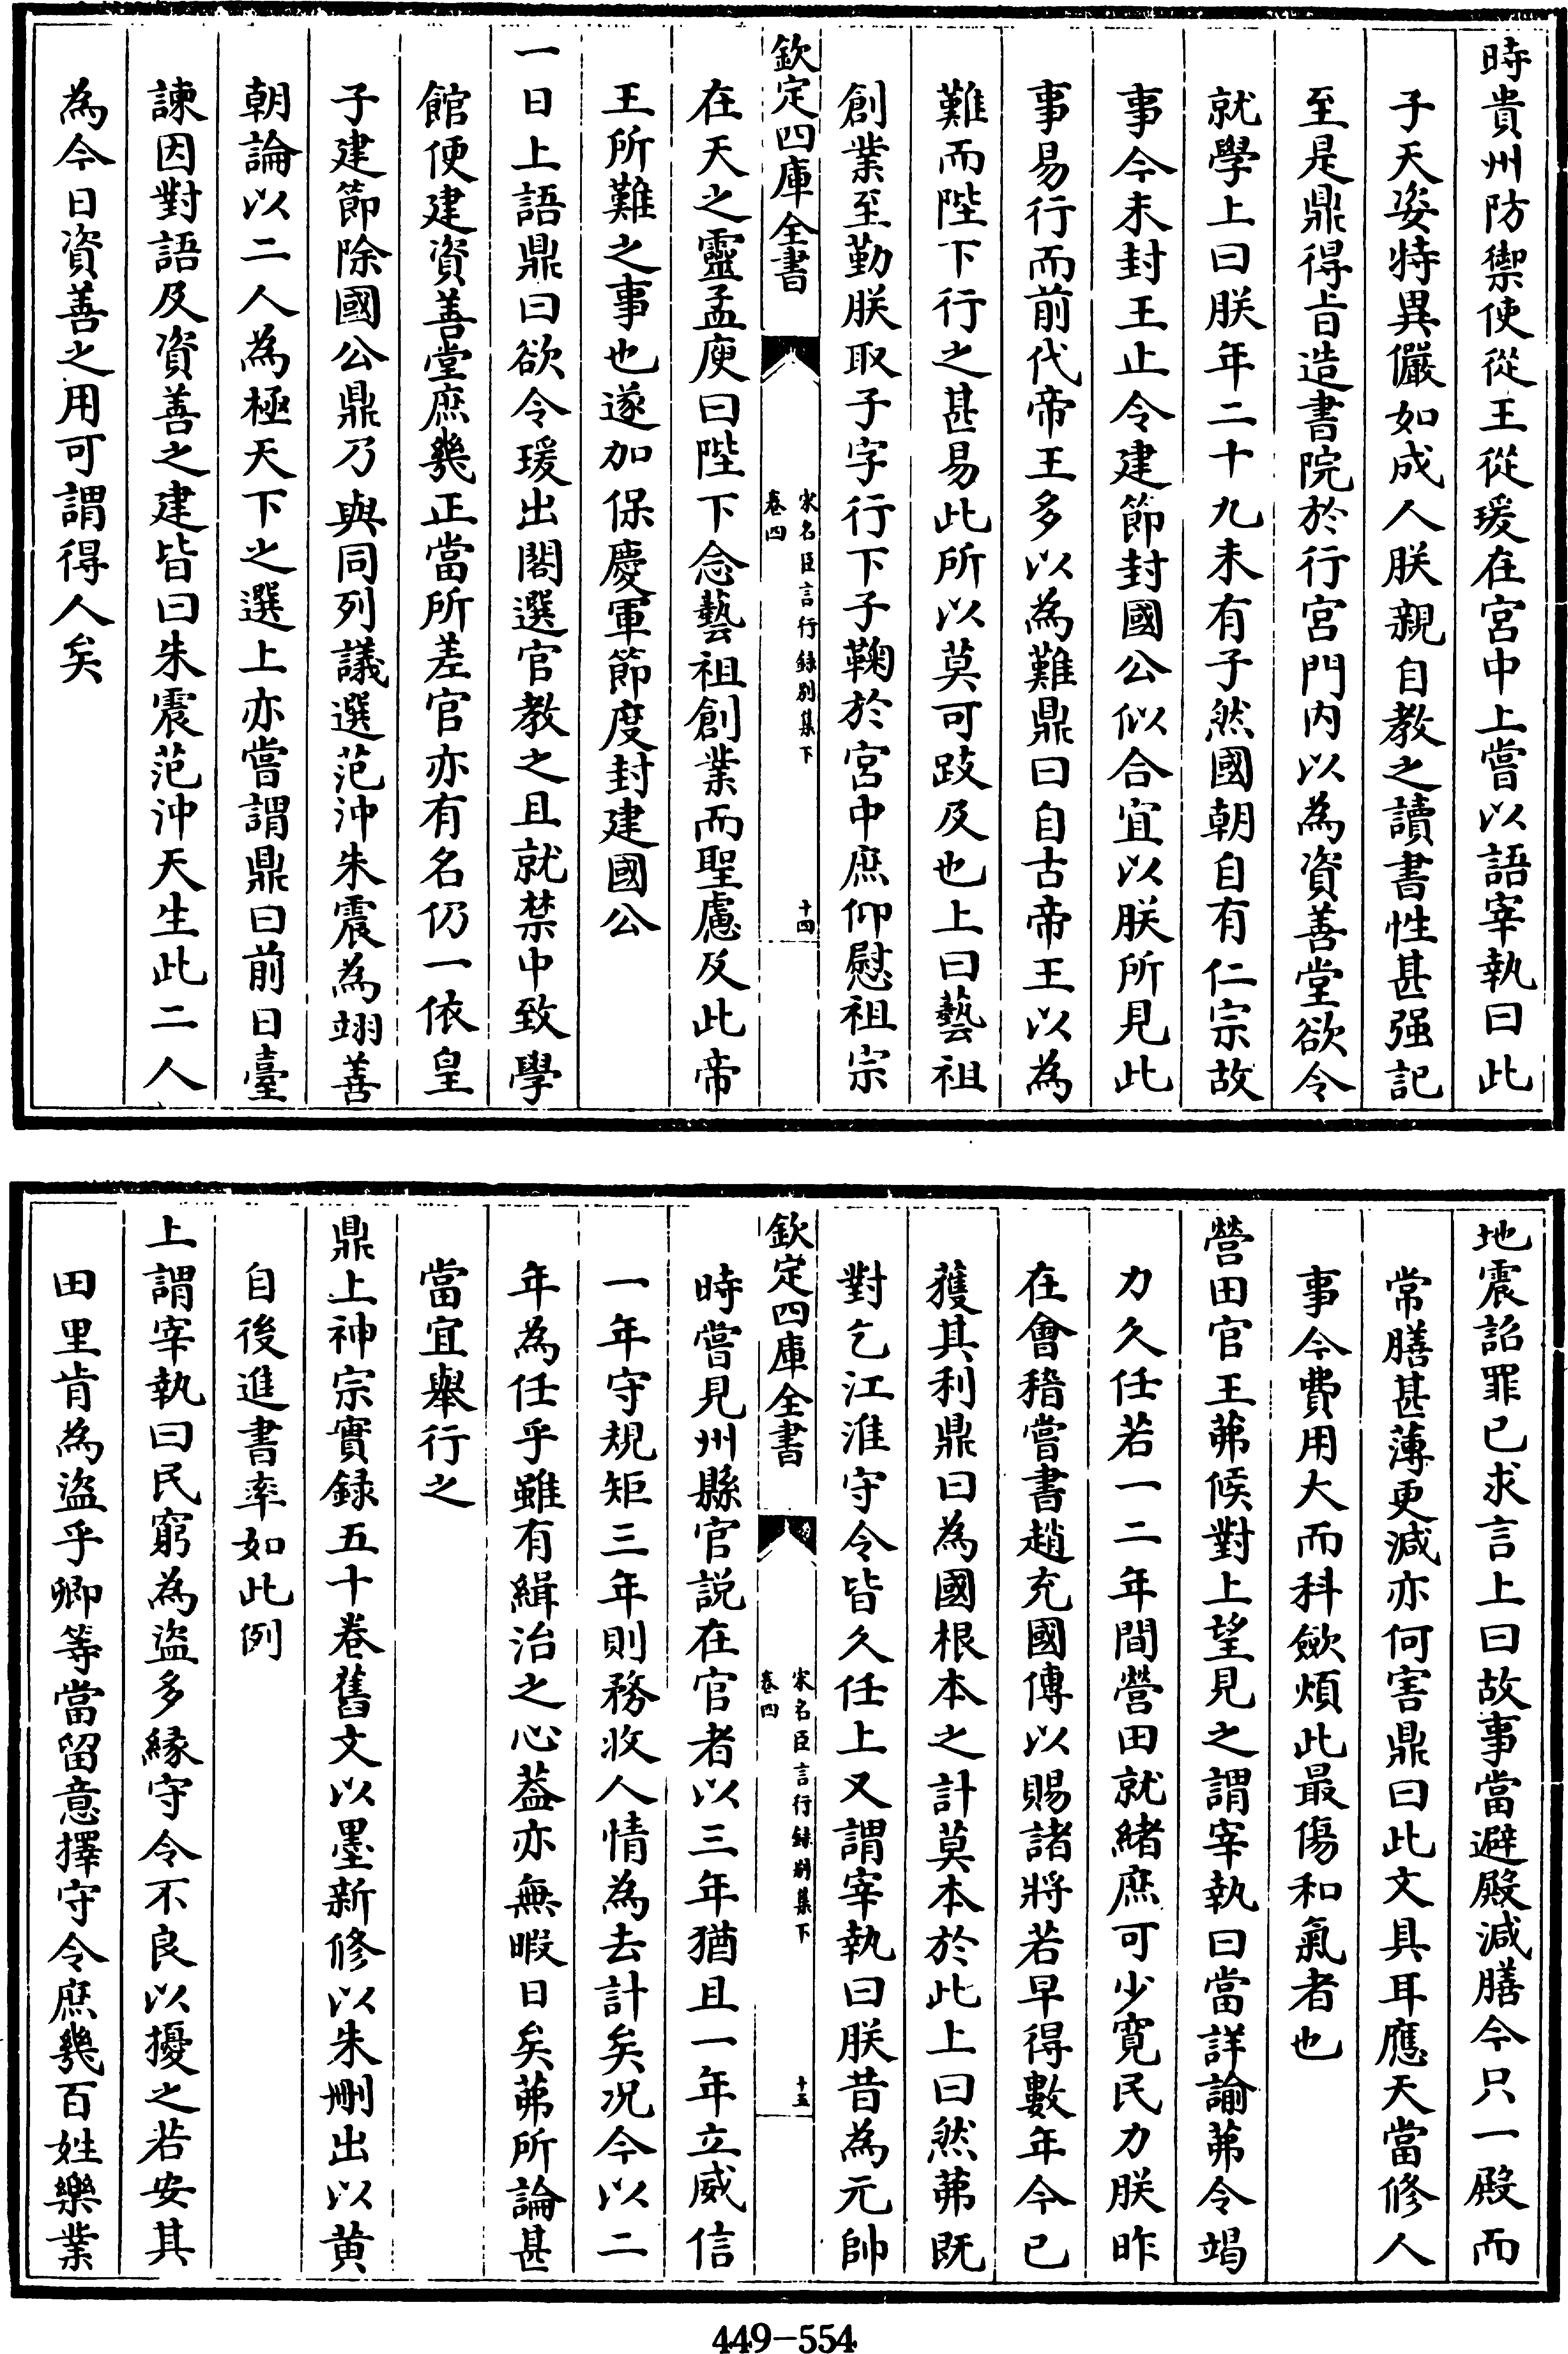 時貴州防禦使從王從瑗在宮中上嘗以語宰執曰此
子天姿特異儼如成人朕親自教之讀書性甚强記
至是鼎得旨造書院於行宮門内以為資善堂欲令
就學上曰朕年二十九未有子然國朝自有仁宗故
事今未封王止令建節封國公似合宜以朕所見此
事易行而前代帝王多以為難鼎曰自古帝王以為
難而陛下行之甚易此所以莫可跂及也上曰藝祖
創業至勤朕取子字行下子鞠於宮中庶仰慰祖宗
欽定四庫全書
宋名臣言行録别集下
卷四
十四
在天之靈孟庾曰陛下念藝祖創業而聖慮及此帝
王所難之事也遂加保慶軍節度封建國公
一日上語鼎曰欲令瑗出閤選官教之且就禁中致學
館便建資善堂庶幾正當所差官亦有名仍一依皇
子建節除國公鼎乃與同列議選范沖朱震為翊善
朝論以二人為極天下之選上亦嘗謂鼎曰前日臺
諫因對語及資善之建皆曰朱震范沖天生此二人
為今日資善之用可謂得人矣
地震詔罪已求言上曰故事當避殿減膳今只一殿而
常膳甚薄更減亦何害鼎曰此文具耳應天當修人
事今費用大而科歛煩此最傷和氣者也
營田官王茀候對上望見之謂宰執曰當詳諭茀令竭
力久任若一二年間營田就緒庶可少寛民力朕昨
在會稽嘗書趙充國傳以賜諸將若早得數年今已
獲其利鼎曰為國根本之計莫本於此上曰然茀既
對乞江淮守令皆久任上又謂宰執曰朕昔為元帥
欽定四庫全書
宋名臣言行録别集下
卷四
十五
時嘗見州縣官説在官者以三年猶且一年立威信
一年守規矩三年則務收人情為去計矣况今以二
年為任乎雖有緝治之心葢亦無暇日矣茀所論甚
當宜舉行之
鼎上神宗實録五十卷舊文以墨新修以朱刪出以黄
自後進書率如此例
上謂宰執曰民窮為盜多縁守令不良以擾之若安其
田里肯為盜乎卿等當留意擇守令庶幾百姓樂業
449-554